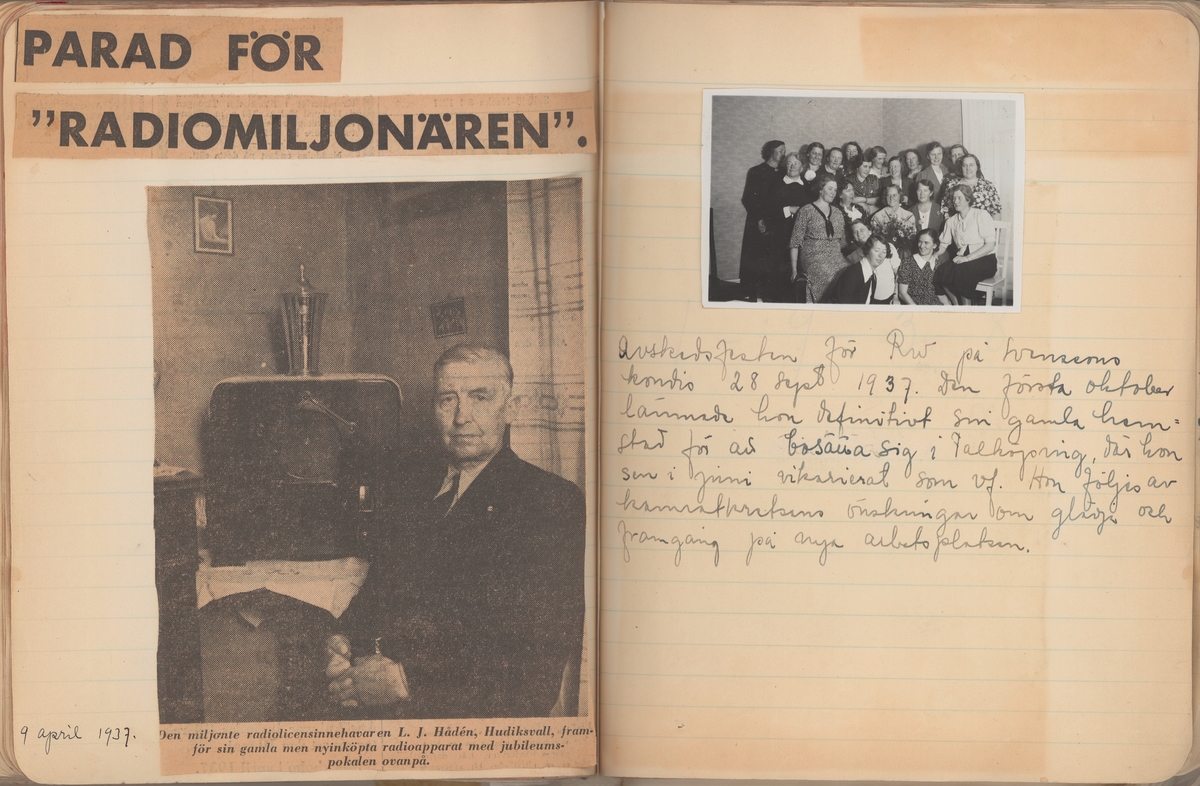 PARAD FÖR
"RADIOMILJONÄREN".
9 april 1937.
Den miljonte radiolicensinnehavaren L. J. Hådén, Hudiksvall, fram-
för sin gamla men nyinköpta radioapparat med jubileums-
pokalen ovanpå.
Avskedsfesten för Rw på Svenssons
kondis 28 sept 1937. Den första oktober
lämnade hon definitivt sin gamla hem=
stad för att bosätta sig i Falköping, där hon
sen i juni vikarierat som vf. Hon följes av
kamratkretsens önskningar om glädje och
framgång på nya arbetsplatsen.